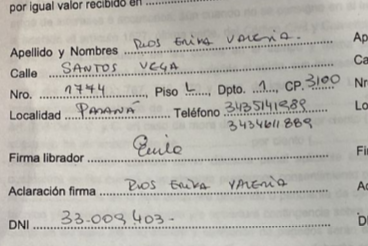 por igual valor recibido en
Apellido y Nombres RIOS ERIKA VALERIA. Ap
Calle SANTOS VEGA Ca
Nro. 1744, Piso L, Dpto. 1, CP. 3100 Nr
Localidad PARANÁ Teléfono 3435141989 Lo
3434611889
Firma librador Fi
Aclaración firma RIOS ERIKA VALERIA A
DNI 33.009.403.- D